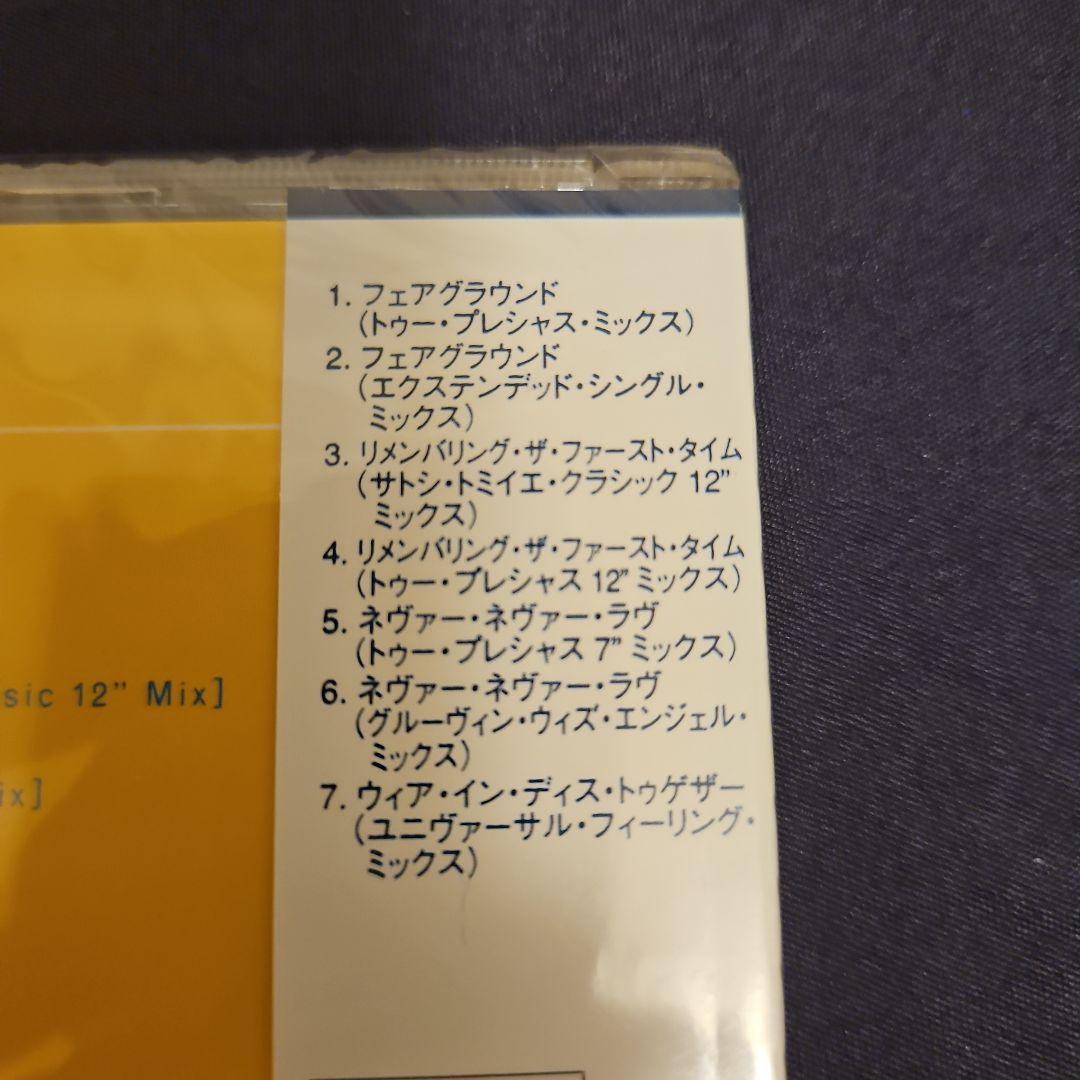 1. フェアグラウンド
(トゥー・プレシャス・ミックス)
2. フェアグラウンド
(エクステンデッド・シングル・
ミックス)
3. リメンバリング・ザ・ファースト・タイム
(サトシ・トミイエ・クラシック 12”
ミックス)
4. リメンバリング・ザ・ファースト・タイム
(トゥー・プレシャス 12” ミックス)
5. ネヴァー・ネヴァー・ラヴ
(トゥー・プレシャス 7” ミックス)
6. ネヴァー・ネヴァー・ラヴ
(グルーヴィン・ウィズ・エンジェル・
ミックス)
7. ウィア・イン・ディス・トゥゲザー
(ユニヴァーサル・フィーリング・
ミックス)
sic 12” Mix]
ix]